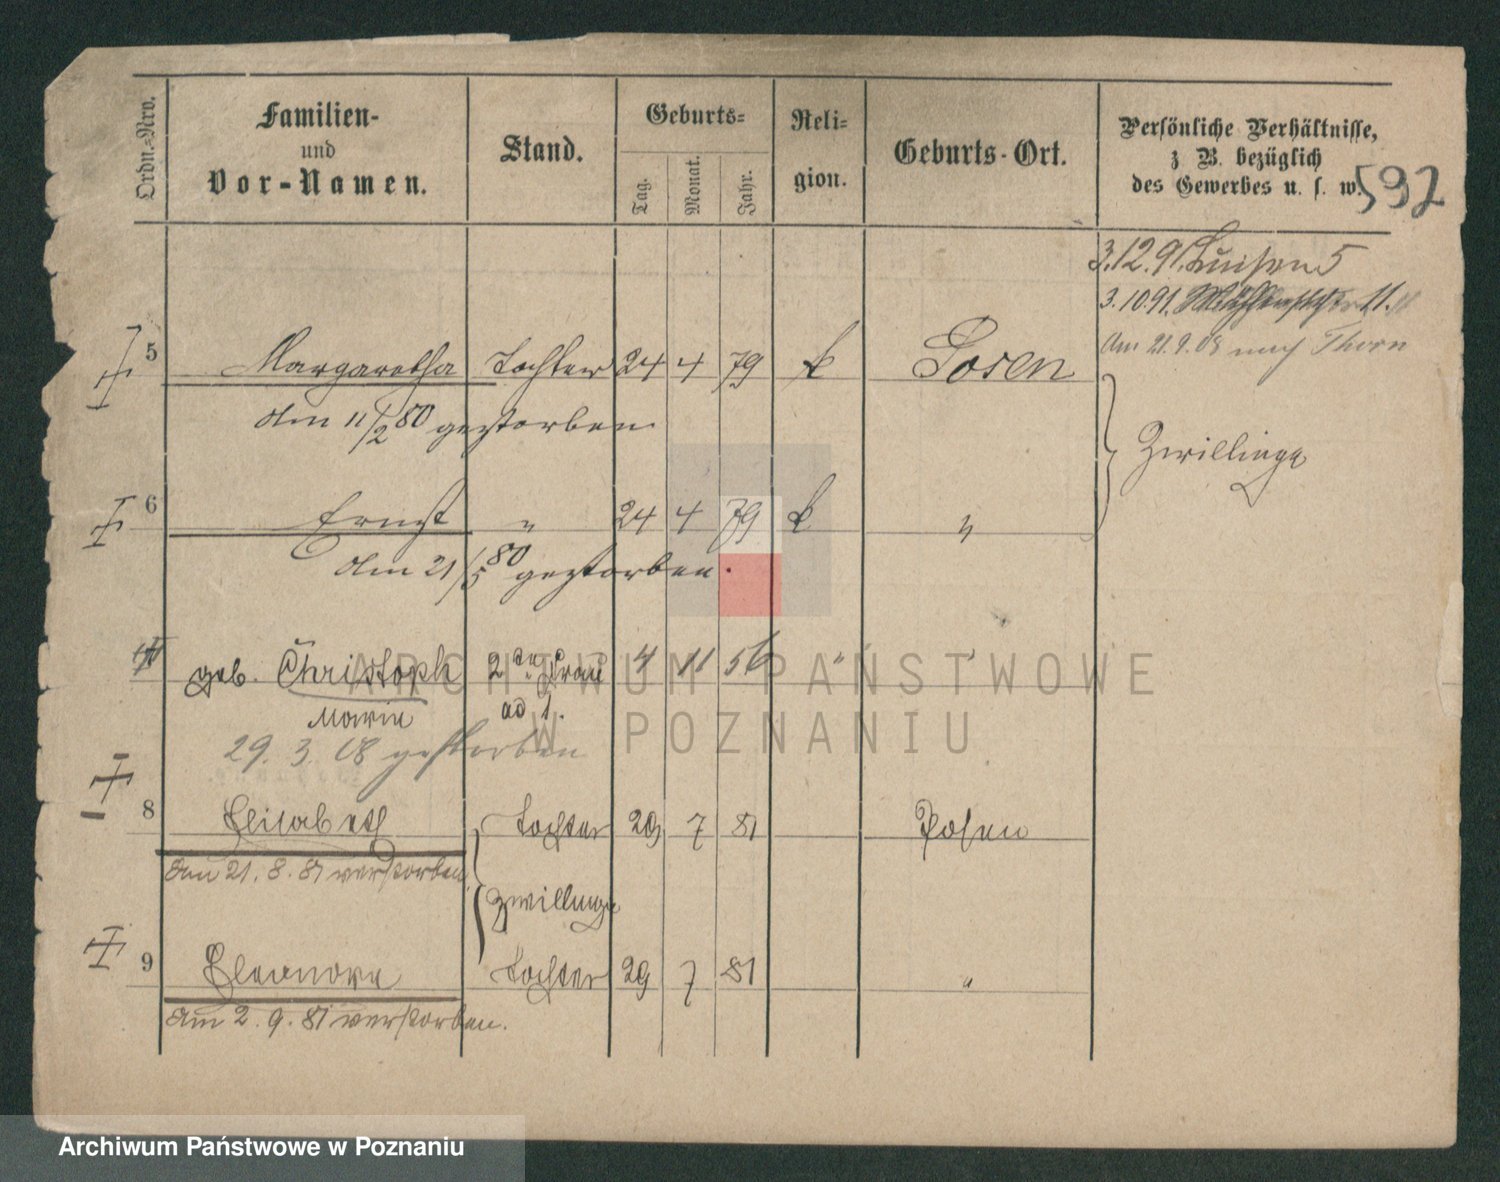 Ordn.-Nro.
Familien-
und
Vor-Namen.
Stand.
Geburts-
Tag.
Monat.
Jahr.
Reli-
gion.
Geburts-Ort.
Persönliche Verhältnisse,
z B. bezüglich
des Gewerbes u. s. w.
592
3.12.91. Luisen 5
3.10.91. Mühlenstr 11.
Am 21.9.08 nach Thorn
5 Margaretha Tochter 24 4 79 k Posen
Am 11/2 80 gestorben
Zwillinge
6 Ernst " 24 4 79 k "
Am 21/5 80 gestorben.
geb. Christoph 2te Frau 4 11 56 " "
Marie ad 1.
29. 3. 08 gestorben
8 Elisabeth Tochter 29 7 81 Posen
Am 21. 8. 81 verstorben
Zwillinge
9 Eleonore Tochter 29 7 81 "
Am 2. 9. 81 verstorben.
ARCHIWUM PAŃSTWOWE
W POZNANIU
Archiwum Państwowe w Poznaniu